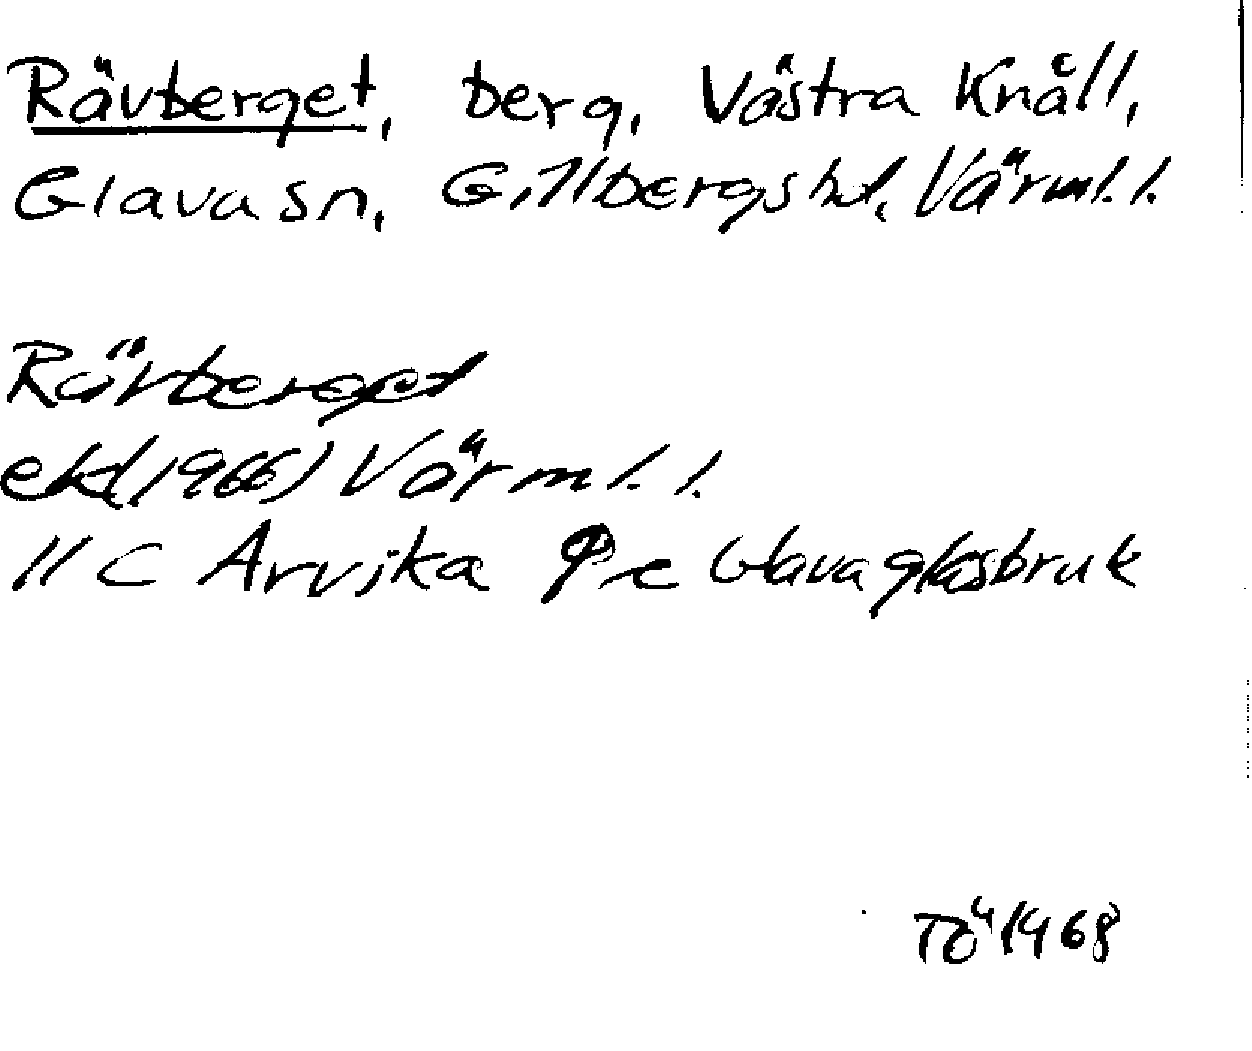 Rävberget, berg, Västra Knåll,
Glava sn, Gillbergs hd, Värml. l.
Rävberget
ekbl (1966) Värml. l.
11 C Arvika 9 e Glava glasbruk
TÖ 1968